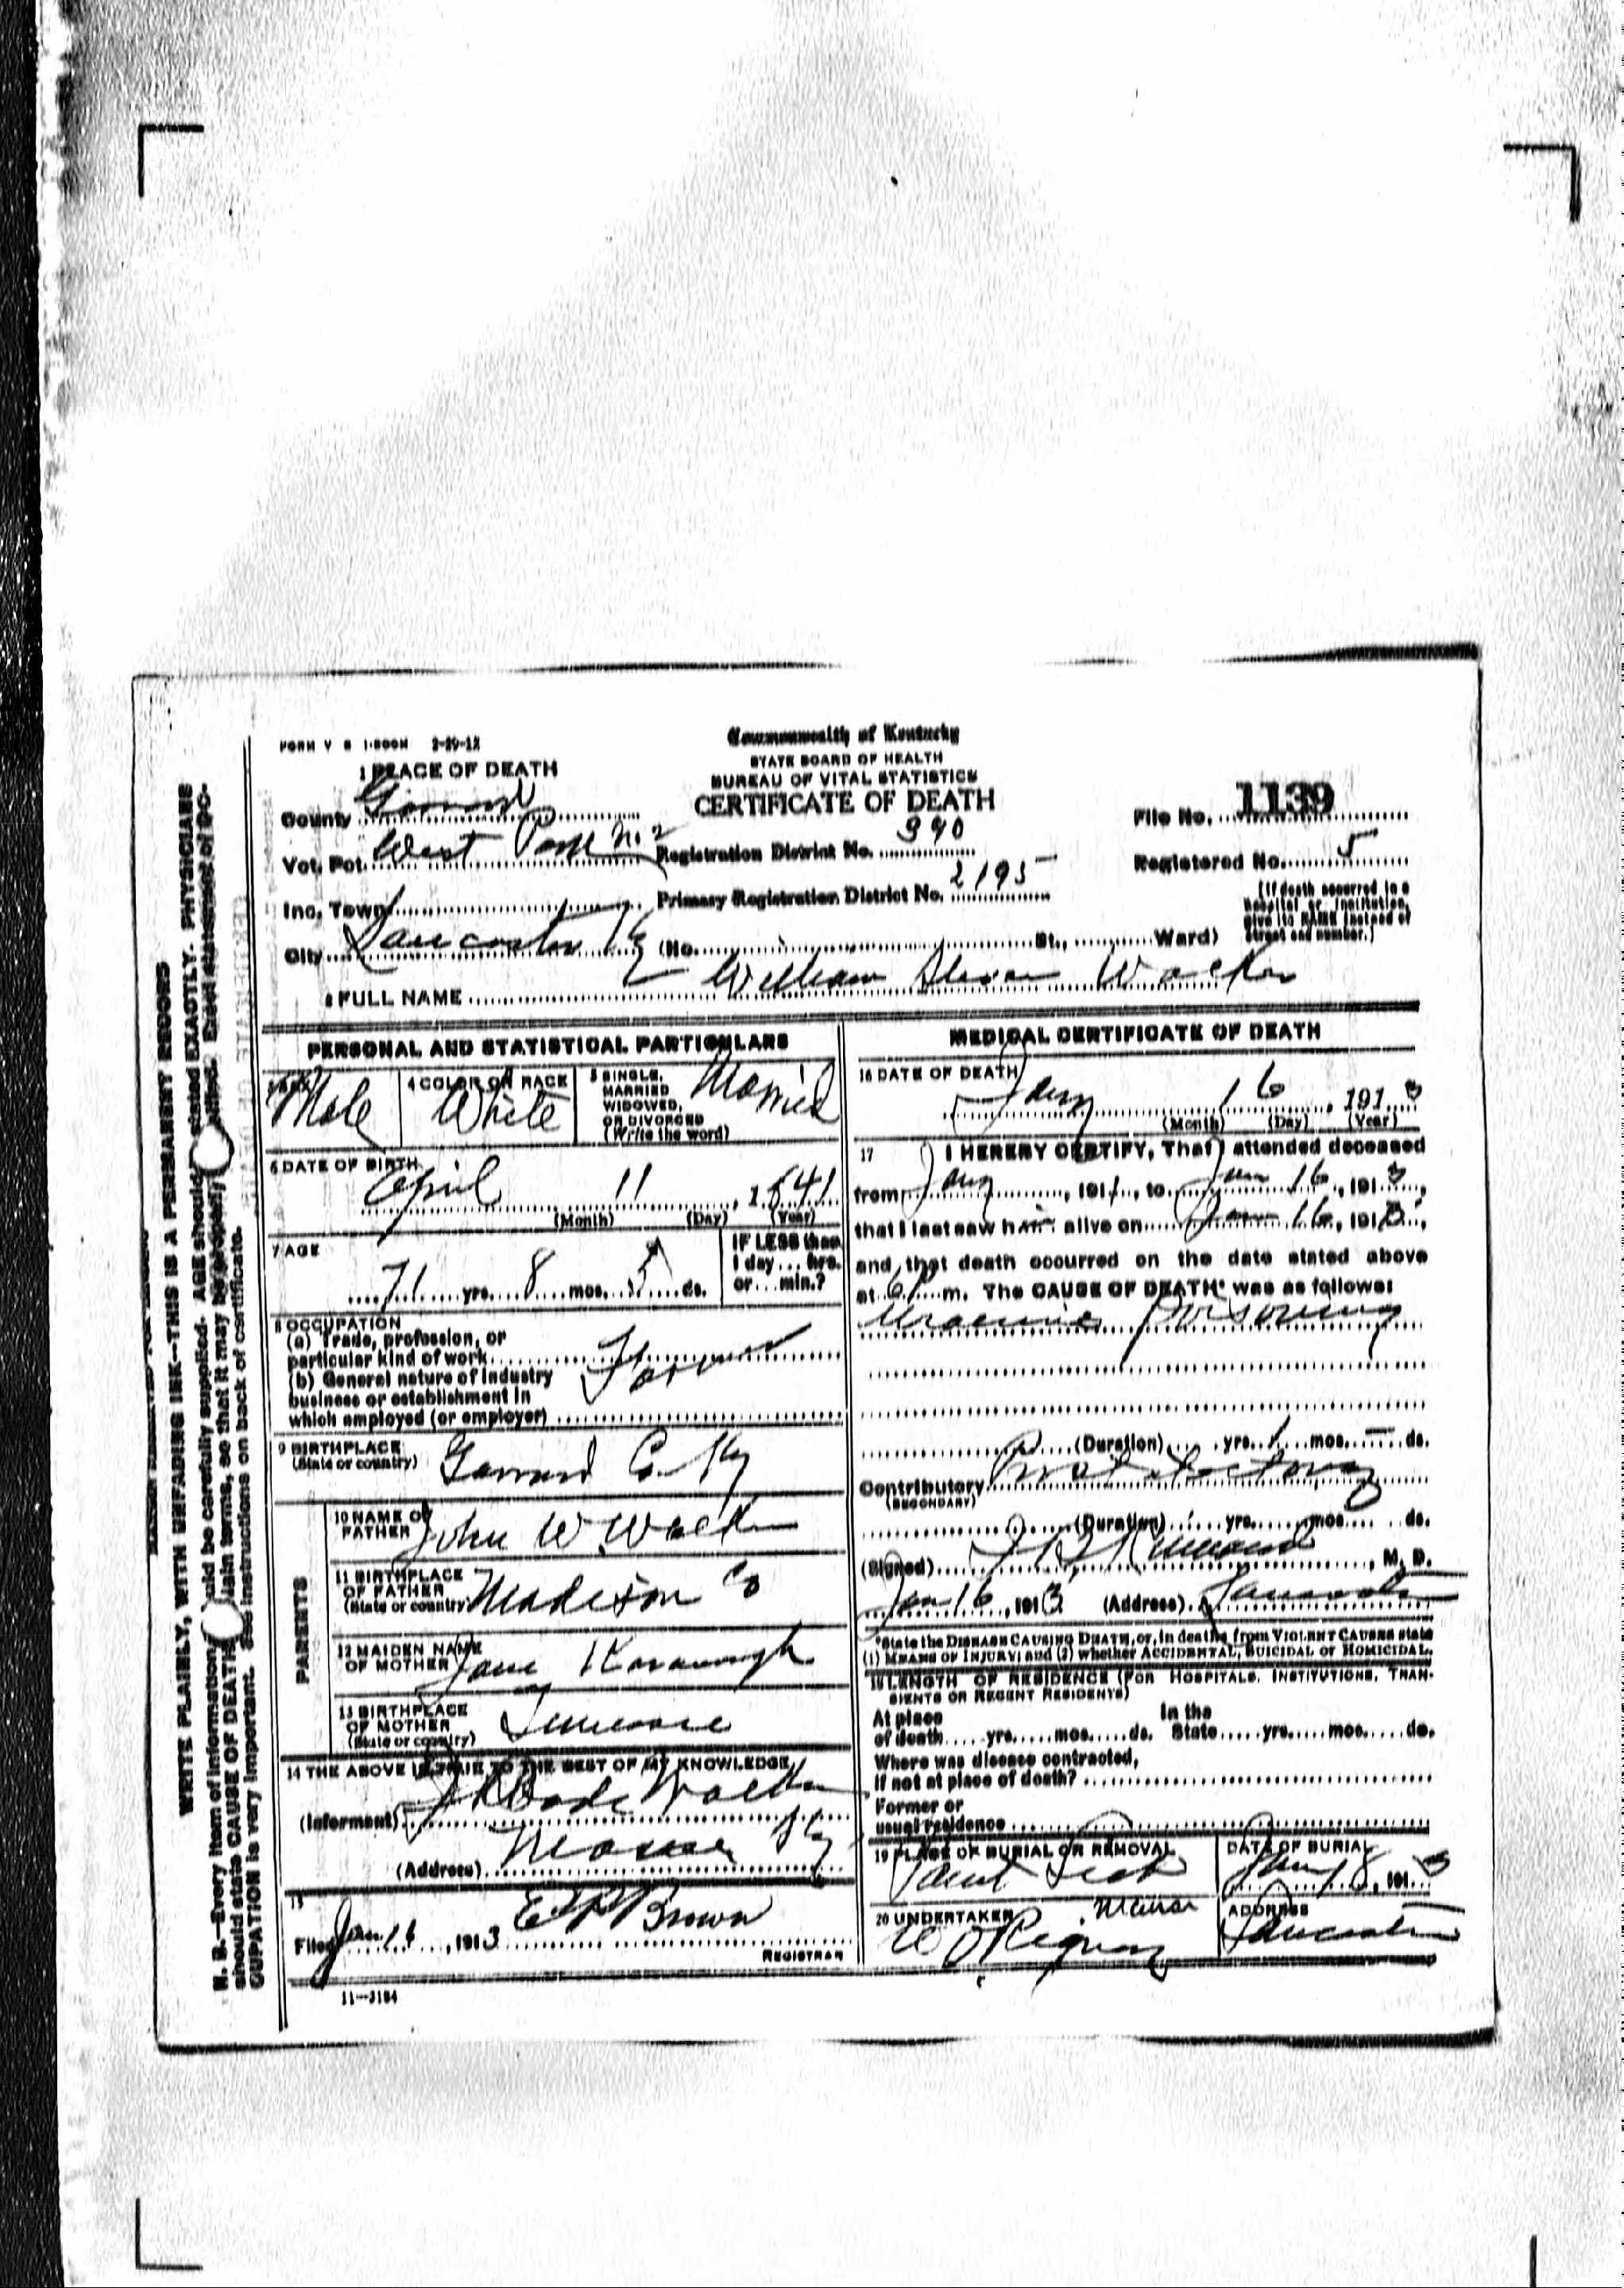 FORM V S 1-500M 2-29-12
Commonwealth of Kentucky
STATE BOARD OF HEALTH
BUREAU OF VITAL STATISTICS
CERTIFICATE OF DEATH
1 PLACE OF DEATH
County
Vot. Pct. West No 2
Inc. Town
City Lancaster Ky (No. St., Ward)
Registration District No. 390
Primary Registration District No. 2195
File No. 1139
Registered No. 5
(If death occurred in a hospital or institution, give its NAME instead of street and number.)
2 FULL NAME William Walker
PERSONAL AND STATISTICAL PARTICULARS
Male
4 COLOR OR RACE White
5 SINGLE, MARRIED WIDOWED, OR DIVORCED (Write the word) Married
6 DATE OF BIRTH
April 11, 1841
(Month) (Day) (Year)
7 AGE
71 yrs. 8 mos. 5 ds.
IF LESS than 1 day... hrs. or... min.?
8 OCCUPATION
(a) Trade, profession, or particular kind of work Farmer
(b) General nature of industry business or establishment in which employed (or employer)
9 BIRTHPLACE (State or country) Garrard Co. Ky
PARENTS
10 NAME OF FATHER John W. Walker
11 BIRTHPLACE OF FATHER (State or country) Madison Co
12 MAIDEN NAME OF MOTHER Kavanaugh
13 BIRTHPLACE OF MOTHER (State or country)
14 THE ABOVE IS TRUE TO THE BEST OF MY KNOWLEDGE
(Informant) Walker
(Address) Ky
15
Filed Jan 16, 1913 Brown
REGISTRAR
11—3184
MEDICAL CERTIFICATE OF DEATH
16 DATE OF DEATH
Jany 16, 1913
(Month) (Day) (Year)
17 I HEREBY CERTIFY, That I attended deceased
from Jany, 191, to Jan 16, 1913,
that I last saw him alive on Jan 16, 1913,
and that death occurred on the date stated above
at 6 m. The CAUSE OF DEATH* was as follows:
Uraemic Poisoning
(Duration) yrs. 1 mos. — ds.
Contributory
(SECONDARY)
(Duration) yrs. mos. ds.
(Signed) , M. D.
Jan 16, 1913 (Address) Lancaster
*State the DISEASE CAUSING DEATH, or, in deaths from VIOLENT CAUSES state
(1) MEANS OF INJURY; and (2) whether ACCIDENTAL, SUICIDAL or HOMICIDAL.
18 LENGTH OF RESIDENCE (FOR HOSPITALS, INSTITUTIONS, TRANSIENTS OR RECENT RESIDENTS)
At place of death yrs. mos. ds. In the State yrs. mos. ds.
Where was disease contracted,
If not at place of death?
Former or
usual residence
19 PLACE OF BURIAL OR REMOVAL Paint Lick
DATE OF BURIAL Jan 18, 1913
20 UNDERTAKER
ADDRESS Lancaster
WRITE PLAINLY, WITH UNFADING INK—THIS IS A PERMANENT RECORD